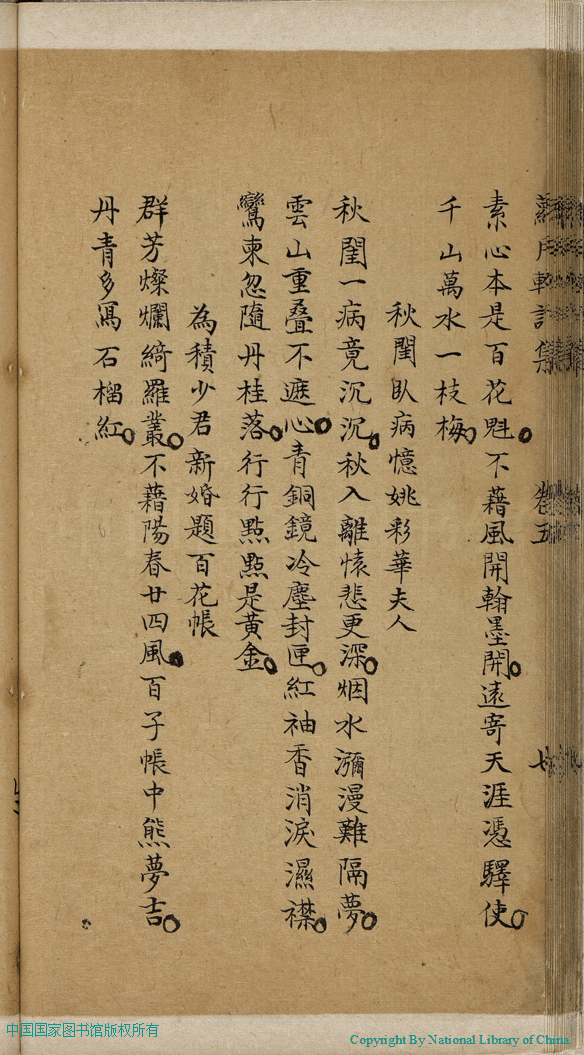 卷五
素心本是百花魁不藉風開翰墨開遠寄天涯憑驛使
千山萬水一枝梅
秋閨臥病憶姚彩華夫人
秋閨一病竟沉沉秋入離懷悲更深烟水瀰漫難隔夢
雲山重疊不遮心青銅鏡冷塵封匣紅袖香消淚濕襟
鸞柬忽隨丹桂落行行點點是黃金
為積少君新婚題百花帳
群芳燦爛綺羅叢不藉陽春廿四風百子帳中熊夢吉
丹青多寫石榴紅
中国国家图书馆版权所有
Copyright By National Library of China